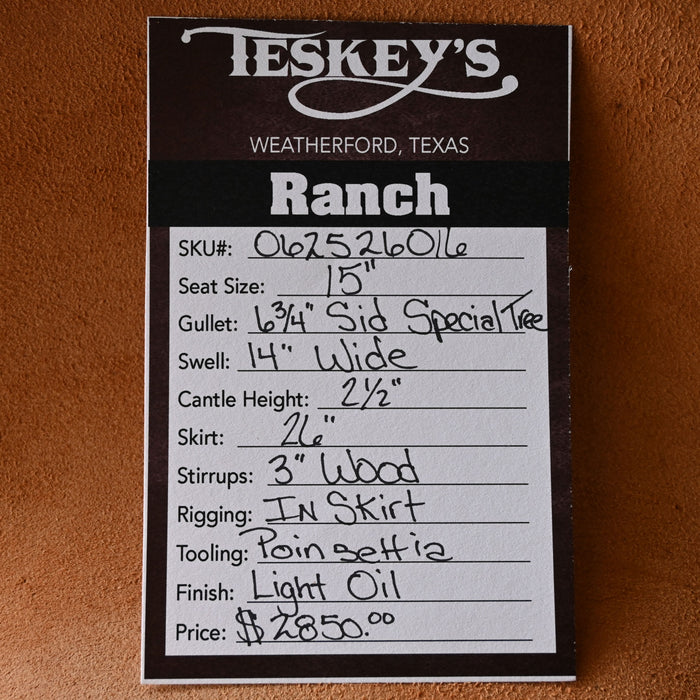 TESKEY'S
WEATHERFORD, TEXAS
Ranch
SKU#: 062526016
Seat Size: 15"
Gullet: 6¾" Sid Special Tree
Swell: 14" Wide
Cantle Height: 2½"
Skirt: 26"
Stirrups: 3" Wood
Rigging: IN Skirt
Tooling: Poinsettia
Finish: Light Oil
Price: $2850.00